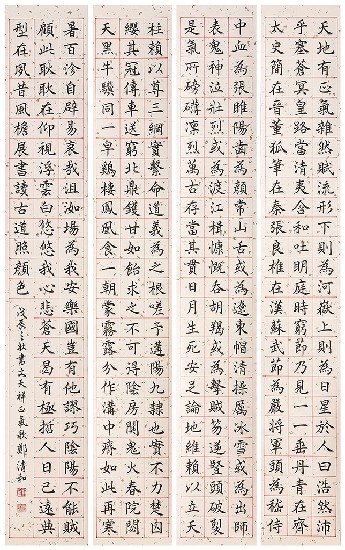 天地有正氣雜然賦流形下則為河嶽上則為日星於人曰浩然沛
乎塞蒼冥皇路當清夷含和吐明庭時窮節乃見一一垂丹青在齊
太史簡在晉董狐筆在秦張良椎在漢蘇武節為嚴將軍頭為嵇侍
中血為張睢陽齒為顏常山舌或為遼東帽清操厲冰雪或為出師
表鬼神泣壯烈或為渡江楫慷慨吞胡羯或為擊賊笏逆豎頭破裂
是氣所磅礡凜烈萬古存當其貫日月生死安足論地維賴以立天
柱賴以尊三綱實繫命道義為之根嗟予遘陽九隸也實不力楚囚
纓其冠傳車送窮北鼎鑊甘如飴求之不可得陰房闃鬼火春院閟
天黑牛驥同一皁鷄棲鳳凰食一朝蒙霧露分作溝中瘠如此再寒
暑百沴自辟易哀哉沮洳場為我安樂國豈有他謬巧陰陽不能賊
顧此耿耿在仰視浮雲白悠悠我心悲蒼天曷有極哲人日已遠典
型在夙昔風檐展書讀古道照顏色
戊辰之秋書文天祥正氣歌鄭清和